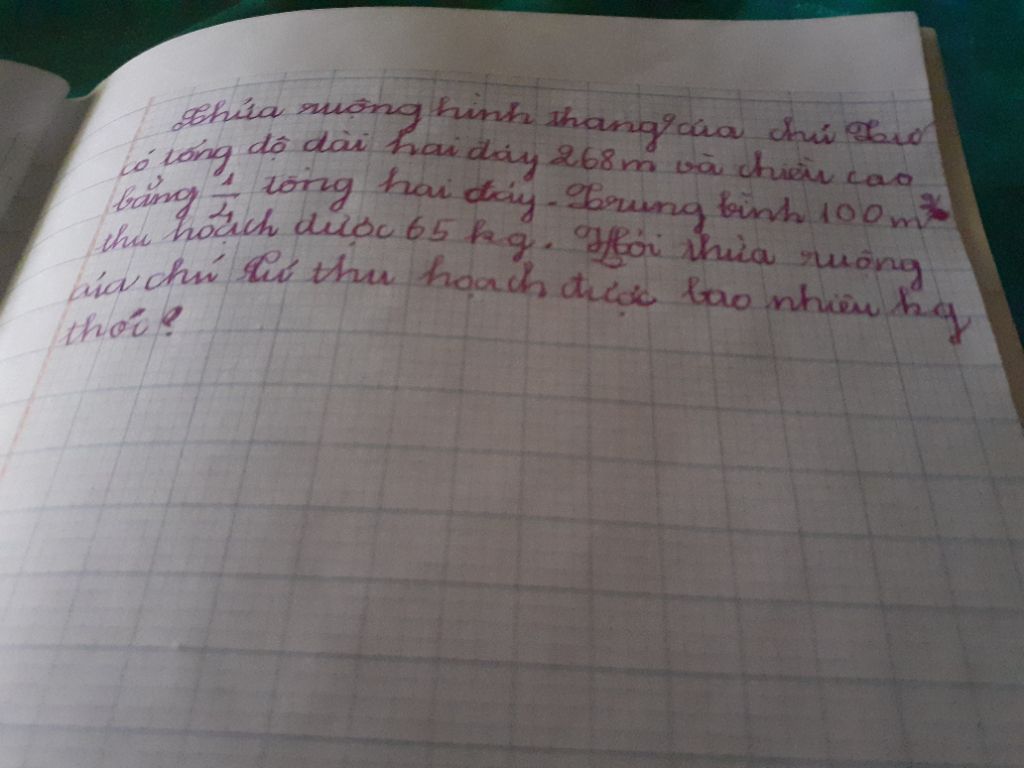 Thửa ruộng hình thang của chú Tư
có tổng độ dài hai đáy 268m và chiều cao
bằng tổng hai đáy. Trung bình 100m²
thu hoạch được 65 kg. Hỏi thửa ruộng
của chú Tư thu hoạch được bao nhiêu kg
thóc?